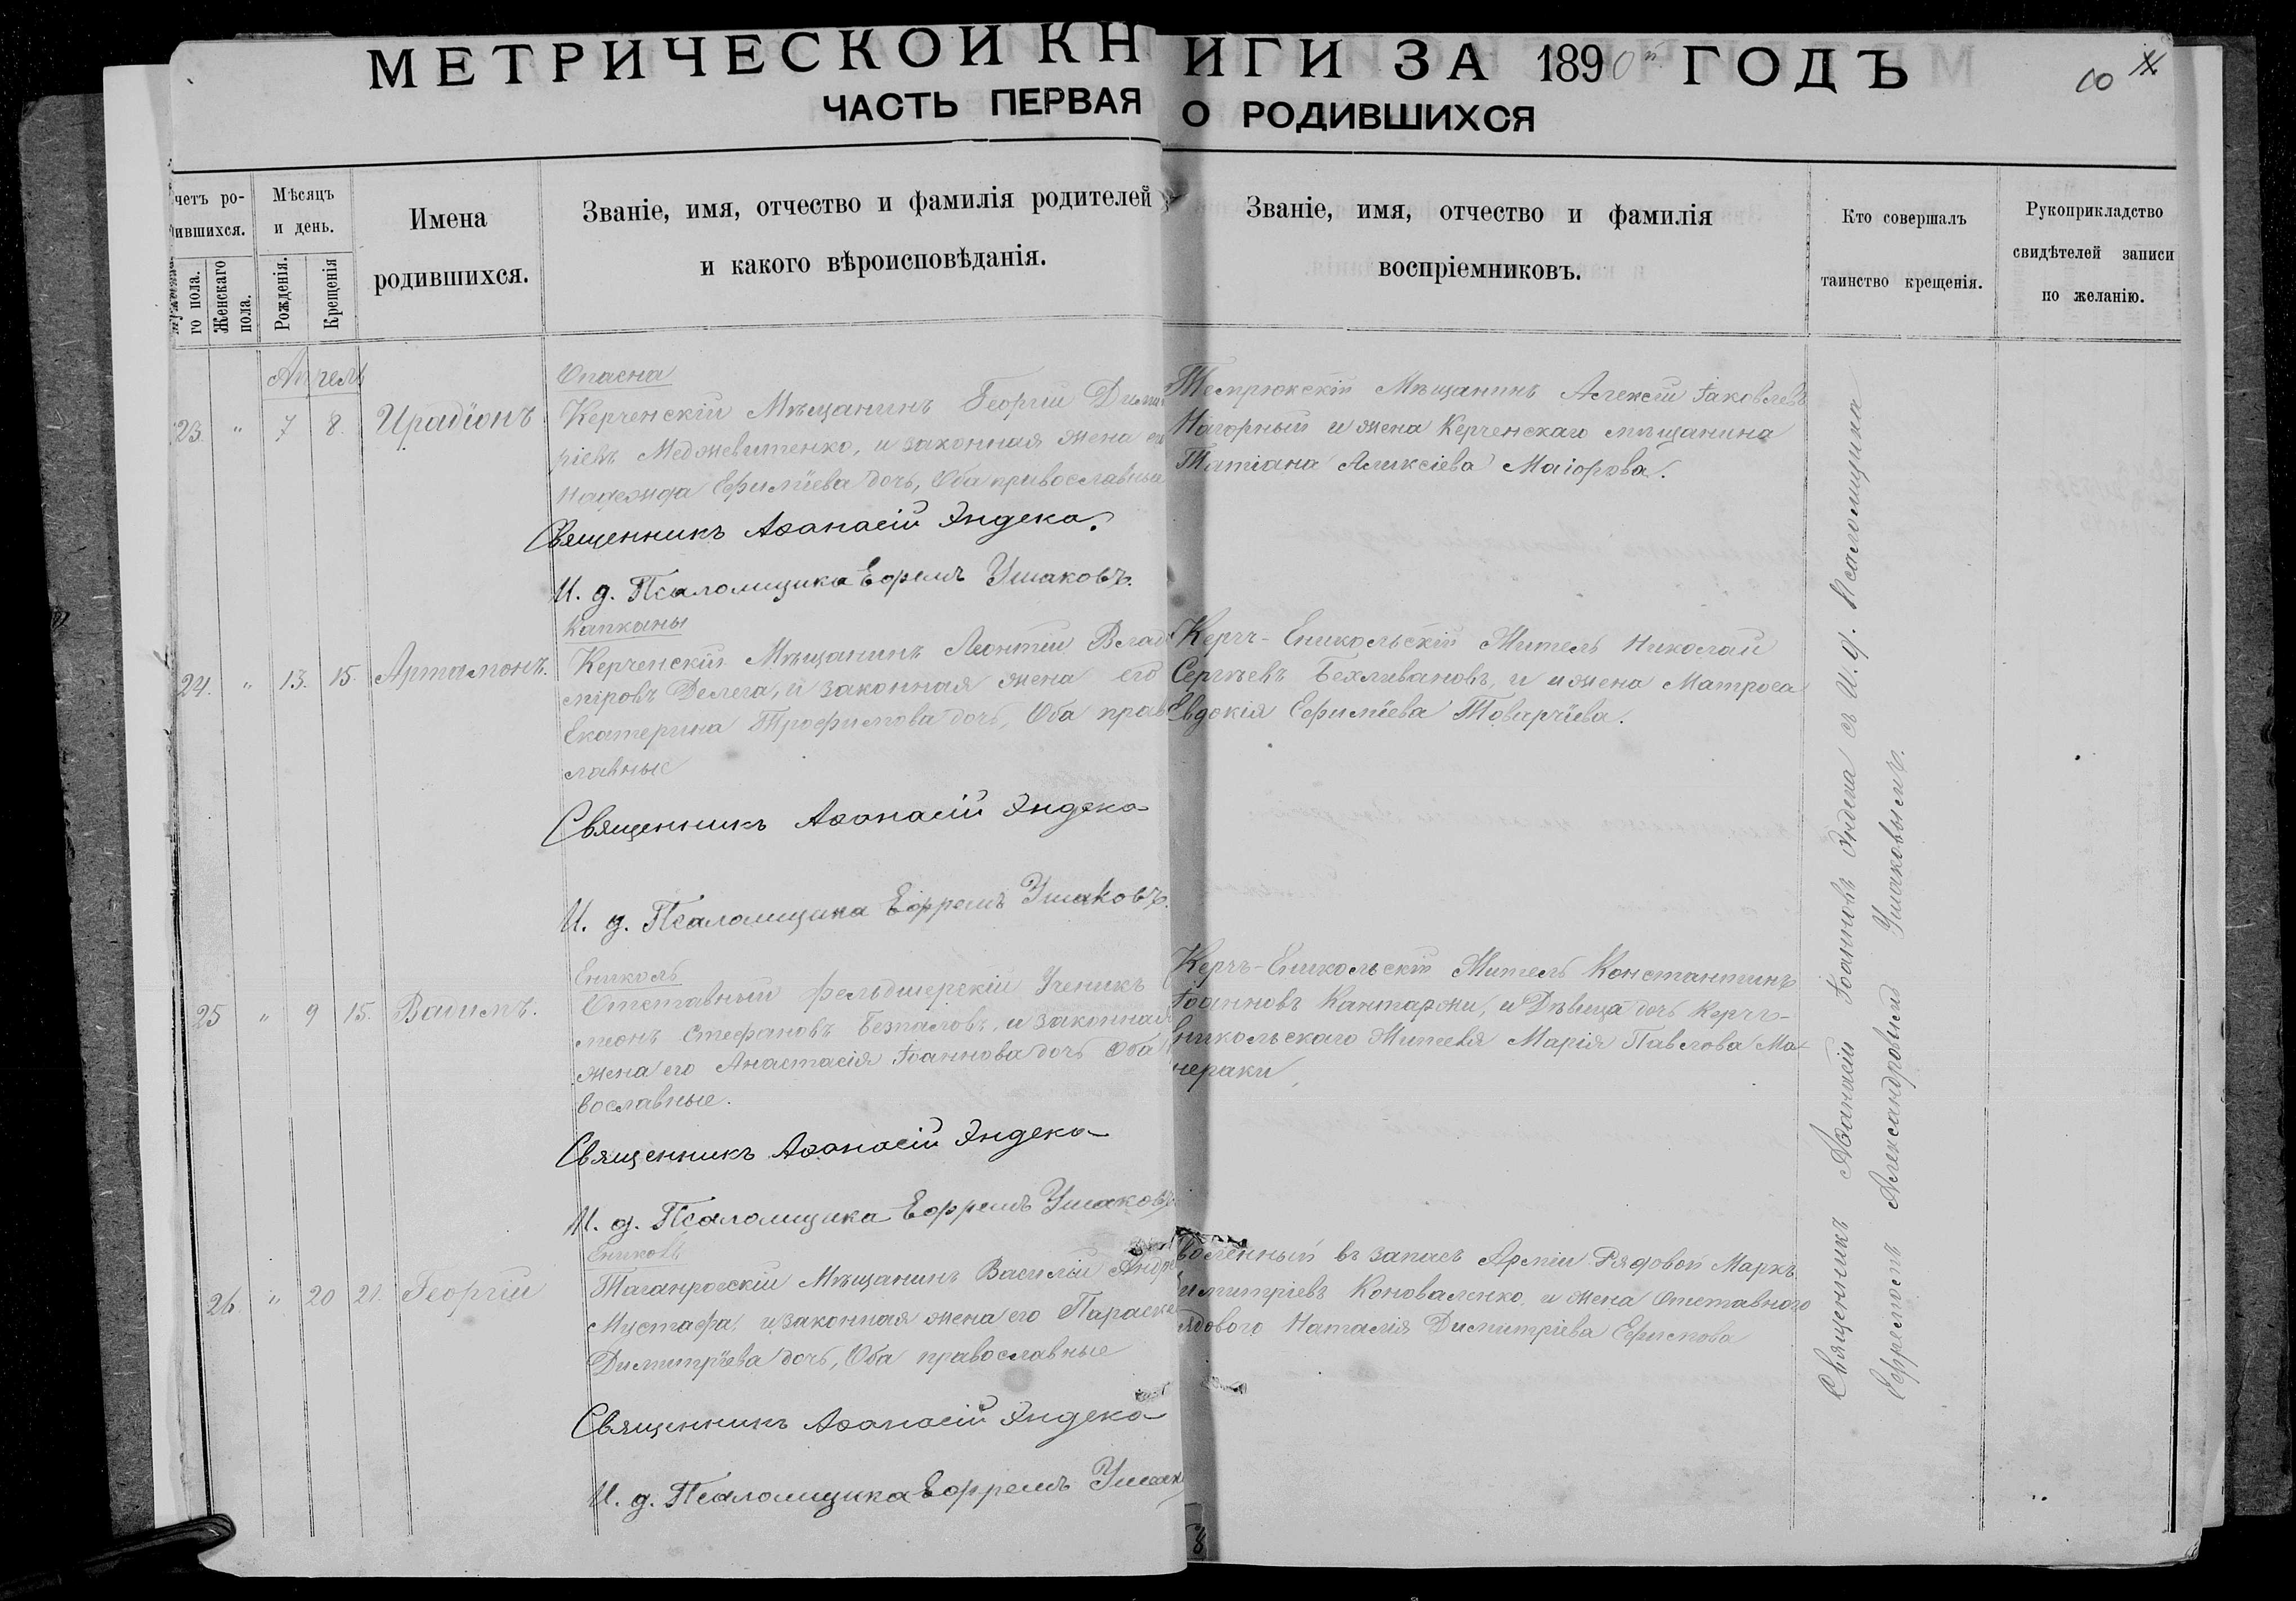 МЕТРИЧЕСКОЙ КНИГИ ЗА 1890й ГОДЪ
10
ЧАСТЬ ПЕРВАЯ О РОДИВШИХСЯ
четъ ро-
ившихся.
го пола.
Женскаго пола.
Мѣсяцъ
и день.
Рожденія.
Крещенія
Имена
родившихся.
Званіе, имя, отчество и фамилія родителей
и какого вѣроисповѣданія.
Званіе, имя, отчество и фамилія
воспріемниковъ.
Кто совершалъ
таинство крещенія.
Рукоприкладство
свидѣтелей записи
по желанію.
Апрель
23. " 7 8. Иродіонъ
Опасна
Керченскій Мѣщанинъ Георгій Дими
ріевъ Меджевитенко, и законная жена его
Надежда Ефиміева дочь, Оба православные
Священникъ Аѳанасій Эндека.
И. д. Псаломщика Ефремъ Ушаковъ.
Темрюкскій Мѣщанинъ Алексій Іаковлевъ
Нагорный и жена Керченскаго мѣщанина
Татіана Алексіева Маіорова.
24. " 13. 15. Артамонъ.
Капканы
Керченскій Мѣщанинъ Леонтій Влади
міровъ Делега, и законная жена его
Екатерина Трофимова дочь, Оба право
славные
Священникъ Аѳанасій Эндека
И. д. Псаломщика Ефремъ Ушаковъ.
Керчь-Еникольскій Житель Николай
Сергѣевъ Бехливановъ, и жена Матроса
Евдокія Ефиміева
25 " 9 15. Вадимъ.
Ениколь
Отставный фельдшерскій Ученикъ
меонъ Стефановъ Безпаловъ, и законная
жена его Анастасія Іоаннова дочь Оба
вославные.
Священникъ Аѳанасій Эндека
И. д. Псаломщика Ефремъ Ушаковъ.
Керчь-Еникольскій Житель Константинъ
Іоанновъ Кантаржи, и Дѣвица дочь Керчь-
Еникольскаго Жителя Марія Павлова Ма-
чераки
26. " 20 21. Георгій
Ениколь
Таганрогскій Мѣщанинъ Василій Андре
Мустафа, и законная жена его Параске
Димитріева дочь, Оба православные
Священникъ Аѳанасій Эндека
И. д. Псаломщика Ефремъ Ушак
воленный въ запасъ Арміи Рядовой Маркъ
имитріевъ Коноваленко, и жена Отставного
ядового Наталія Димитріева Ефимова
Священникъ Аѳанасій Іоанновъ Эндека съ И. д. Псаломщика
Ефремомъ Александровымъ Ушаковымъ.